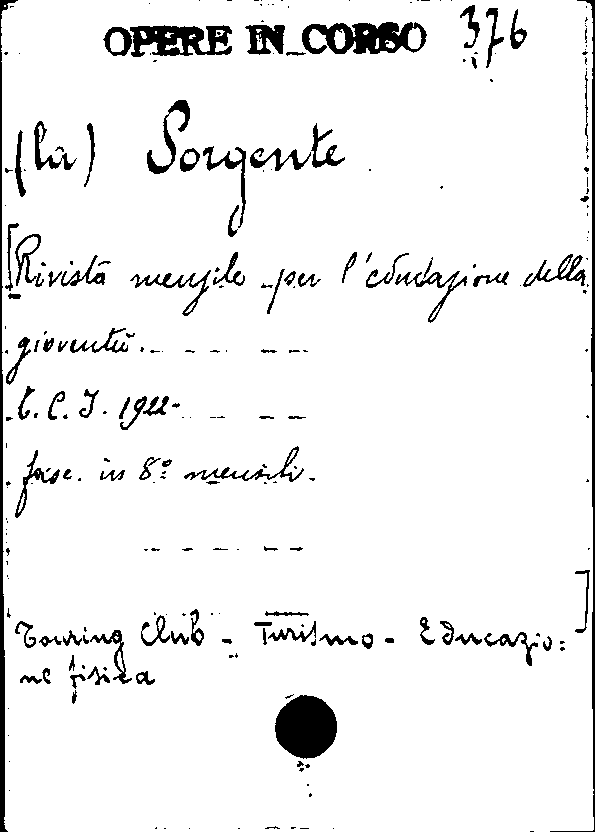 OPERE IN CORSO 376
(la) Sorgente
[Rivista mensile per l'educazione della
gioventù. _ _ _ _
T. C. I. 1922- _ _ _
fasc. in 8º mensili.
_ _ _ _ _
]
Touring Club - Turismo - Educazio:
ne fisica